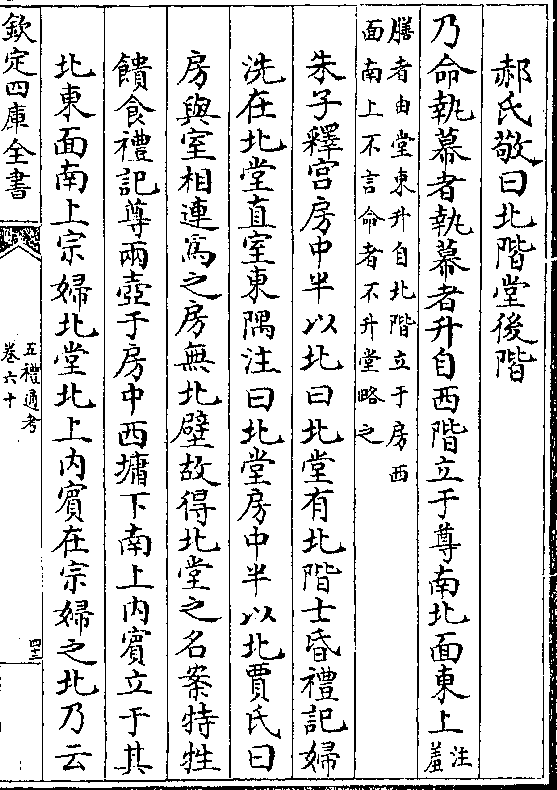 郝氏敬曰北階堂後階
乃命執冪者執冪者升自西階立于尊南北面東上注羞
膳者由堂東升自北階立于房西
面南上不言命者不升堂略之
朱子釋宫房中半以北曰北堂有北階士昏禮記婦
洗在北堂直室東隅注曰北堂房中半以北賈氏曰
房與室相連爲之房無北壁故得北堂之名案特牲
饋食禮記尊兩壺于房中西墉下南上内賓立于其
北東面南上宗婦北堂北上内賓在宗婦之北乃云
欽定四庫全書
五禮通考
卷六十
四三